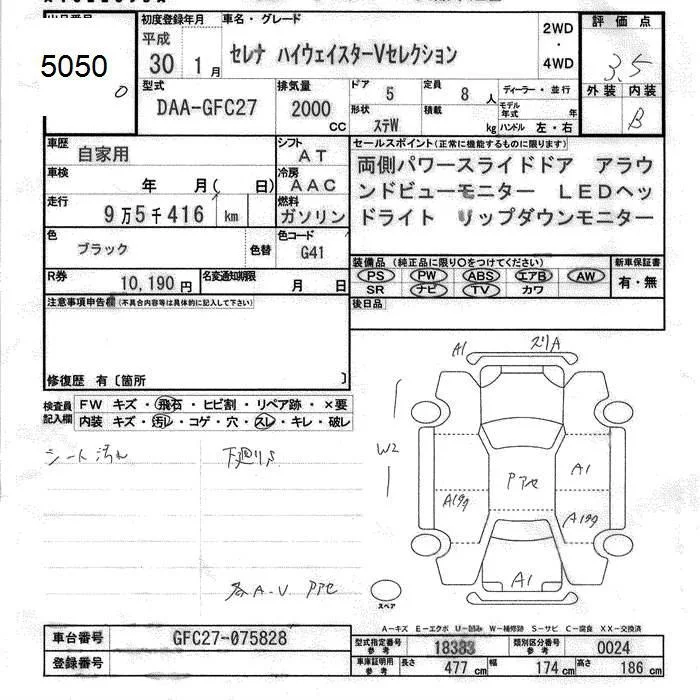 5050
0
初度登録年月
平成
30 1月
車名・グレード
セレナ ハイウェイスターVセレクション
2WD
・
4WD
評価点
3.5
外装 内装
B
型式
DAA-GFC27
排気量
2000
CC
ドア 5
定員 8 人
形状 ステW
積載 kg
ディーラー・並行
モデル年式 年
ハンドル 左・右
車歴 自家用
シフト AT
車検 年 月( 日)
冷房 AAC
走行 9万5千416 km
燃料 ガソリン
色 ブラック
色替
色コード G41
R券 10,190円
名変通知期限 月 日
セールスポイント(正常に機能するものに限ります)
両側パワースライドドア アラウ
ンドビューモニター LEDヘッ
ドライト リップダウンモニター
装備品(純正品に限り○をつけてください)
PS PW ABS エアB AW
SR ナビ TV カワ
新車保証書
有・無
後日品
注意事項申告欄(不具合内容等は具体的に記入して下さい)
修復歴 有〔箇所 〕
検査員記入欄
FW キズ・飛石・ヒビ割・リペア跡・×要
内装 キズ・汚れ・コゲ・穴・スレ・キレ・破レ
シート汚れ
下廻りS
各A.V Pアセ
A1
スリA
W2
A1
Pアセ
A1
スペア
A-キズ E-エクボ U-凹み W-補修跡 S-サビ C-腐食 XX-交換済
車台番号 GFC27-075828
登録番号
型式指定番号参考 18383
類別区分番号参考 0024
車庫証明用参考 長さ 477cm 幅 174cm 高さ 186cm